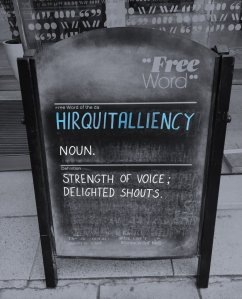 "Free
Word"
Free Word of the da
HIRQUITALLIENCY
NOUN.
Definition
STRENGTH OF VOICE;
DELIGHTED SHOUTS.